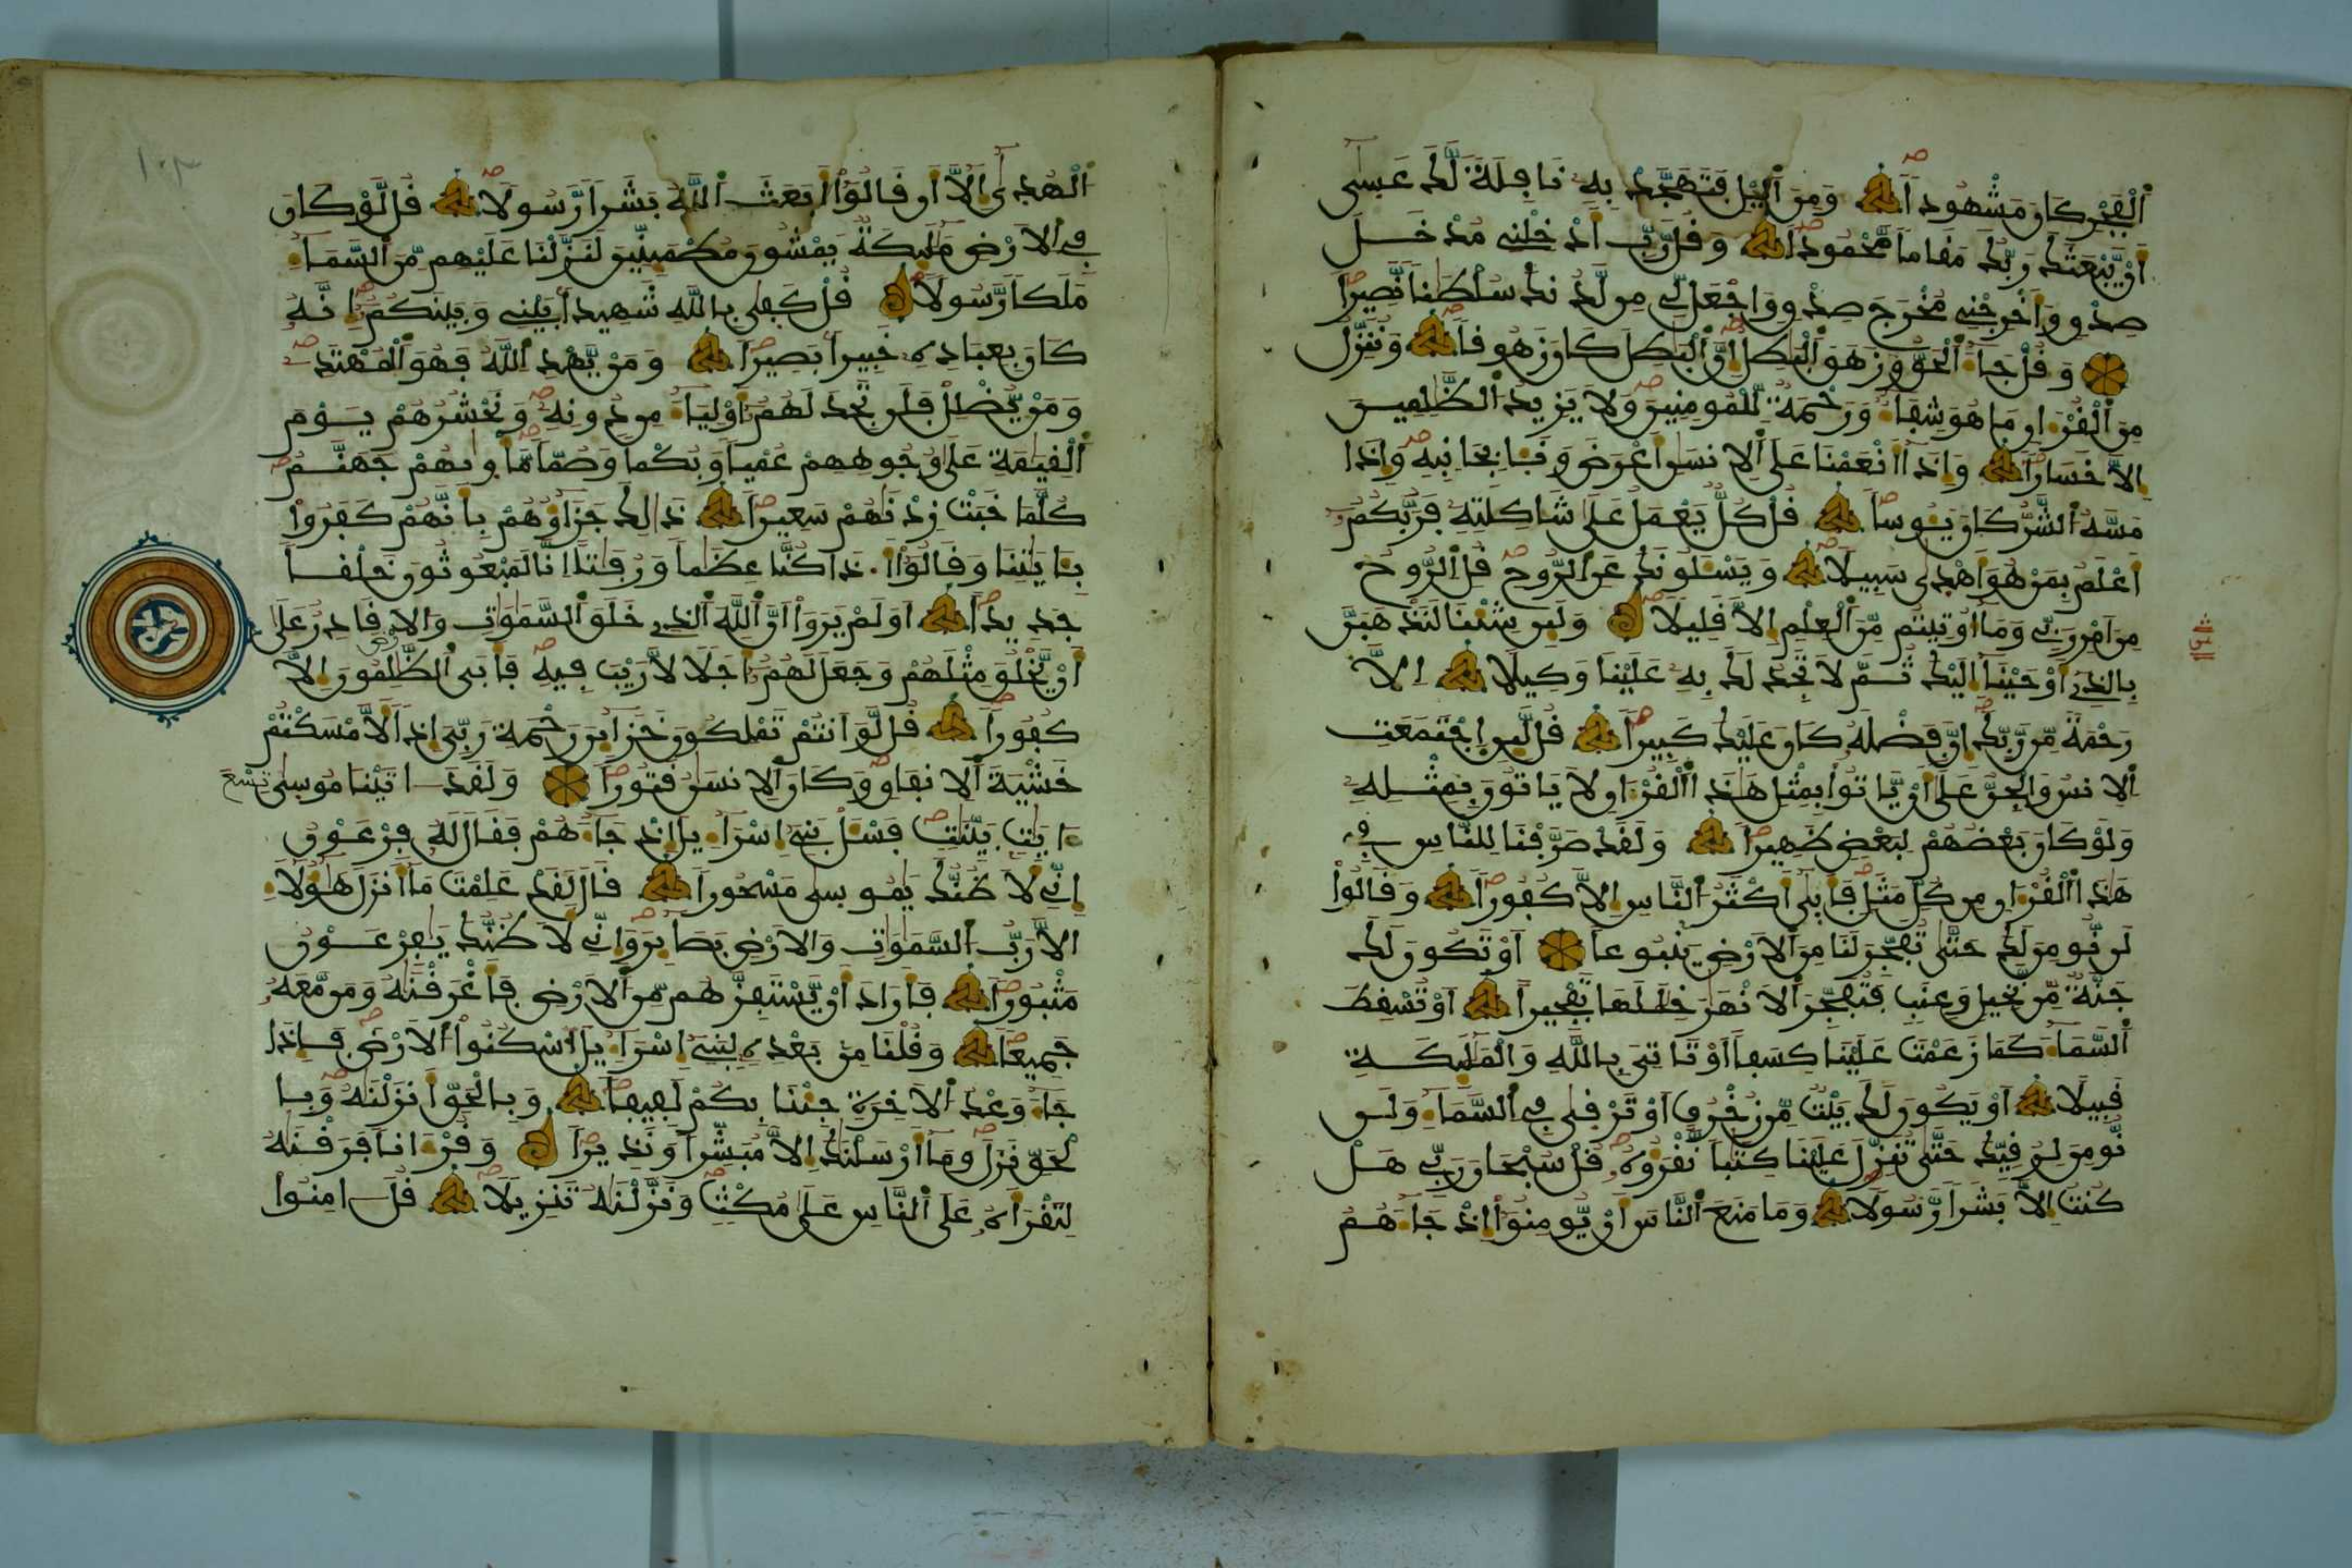 الفجر كان مشهودا ومن اليل فتهجد به نافلة لك عسى
ان يبعثك ربك مقاما محمودا وقل رب ادخلني مدخل
صدق واخرجني مخرج صدق واجعل لي من لدنك سلطنا نصيرا
وقل جاء الحق وزهق البطل ان البطل كان زهوقا وننزل
من القرءان ما هو شفاء ورحمة للمومنين ولا يزيد الظلمين
الا خسارا واذا انعمنا على الانسن اعرض ونا بجانبه واذا
مسه الشر كان يوسا قل كل يعمل على شاكلته فربكم
اعلم بمن هو اهدى سبيلا ويسلونك عن الروح قل الروح
من امر ربي وما اوتيتم من العلم الا قليلا ولين شينا لنذهبن
بالذي اوحينا اليك ثم لا تجد لك به علينا وكيلا الا
رحمة من ربك ان فضله كان عليك كبيرا قل لين اجتمعت
الانس والجن على ان ياتوا بمثل هذا القرءان لا ياتون بمثله
ولو كان بعضهم لبعض ظهيرا ولقد صرفنا للناس في
هذا القرءان من كل مثل فابى اكثر الناس الا كفورا وقالوا
لن نومن لك حتى تفجر لنا من الارض ينبوعا او تكون لك
جنة من نخيل وعنب فتفجر الانهر خللها تفجيرا او تسقط
السماء كما زعمت علينا كسفا او تاتي بالله والمليكة
قبيلا او يكون لك بيت من زخرف او ترقى في السماء ولن
نومن لرقيك حتى تنزل علينا كتبا نقرؤه قل سبحان ربي هل
كنت الا بشرا رسولا وما منع الناس ان يومنوا اذ جاءهم
١٠٣
الهدى الا ان قالوا ابعث الله بشرا رسولا قل لو كان
في الارض مليكة يمشون مطمينين لنزلنا عليهم من السماء
ملكا رسولا قل كفى بالله شهيدا بيني وبينكم انه
كان بعباده خبيرا بصيرا ومن يهد الله فهو المهتد
ومن يضلل فلن تجد لهم اولياء من دونه ونحشرهم يوم
القيمة على وجوههم عميا وبكما وصما ماويهم جهنم
كلما خبت زدنهم سعيرا ذلك جزاؤهم بانهم كفروا
بئايتنا وقالوا اذا كنا عظما ورفتا انا لمبعوثون خلقا
جديدا اولم يروا ان الله الذي خلق السموت والارض قادر على
ان يخلق مثلهم وجعل لهم اجلا لا ريب فيه فابى الظلمون الا
كفورا قل لو انتم تملكون خزاين رحمة ربي اذا لامسكتم
خشية الانفاق وكان الانسن قتورا ولقد اتينا موسى تسع
ءايت بينت فسل بني اسراءيل اذ جاءهم فقال له فرعون
اني لاظنك يموسى مسحورا قال لقد علمت ما انزل هؤلاء
الا رب السموت والارض بصاير واني لاظنك يفرعون
مثبورا فاراد ان يستفزهم من الارض فاغرقنه ومن معه
جميعا وقلنا من بعده لبني اسراءيل اسكنوا الارض فاذا
جاء وعد الاخرة جينا بكم لفيفا وبالحق انزلنه وبا
لحق نزل وما ارسلنك الا مبشرا ونذيرا وقرءانا فرقنه
لتقراه على الناس على مكث ونزلنه تنزيلا قل امنوا